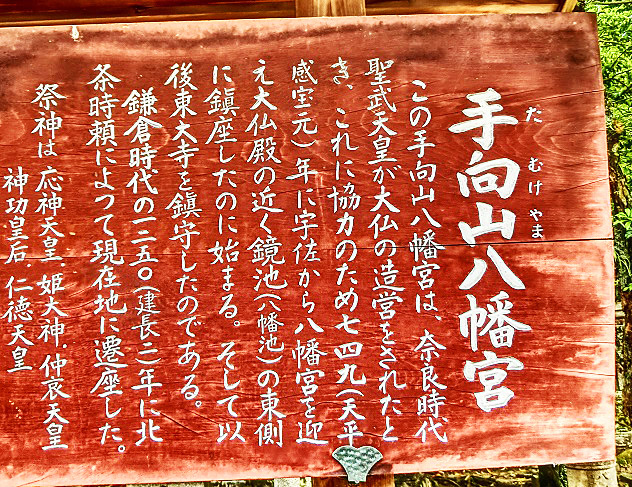 手向山八幡宮
たむけやま
この手向山八幡宮は、奈良時代
聖武天皇が大仏の造営をされたと
き、これに協力のため七四九(天平
感宝元)年に宇佐から八幡宮を迎
え大仏殿の近く鏡池(八幡池)の東側
に鎮座したのに始まる。そして以
後東大寺を鎮守したのである。
鎌倉時代の一二五〇(建長二)年に北
条時頼によって現在地に遷座した。
祭神は 応神天皇、姫大神、仲哀天皇
神功皇后、仁徳天皇